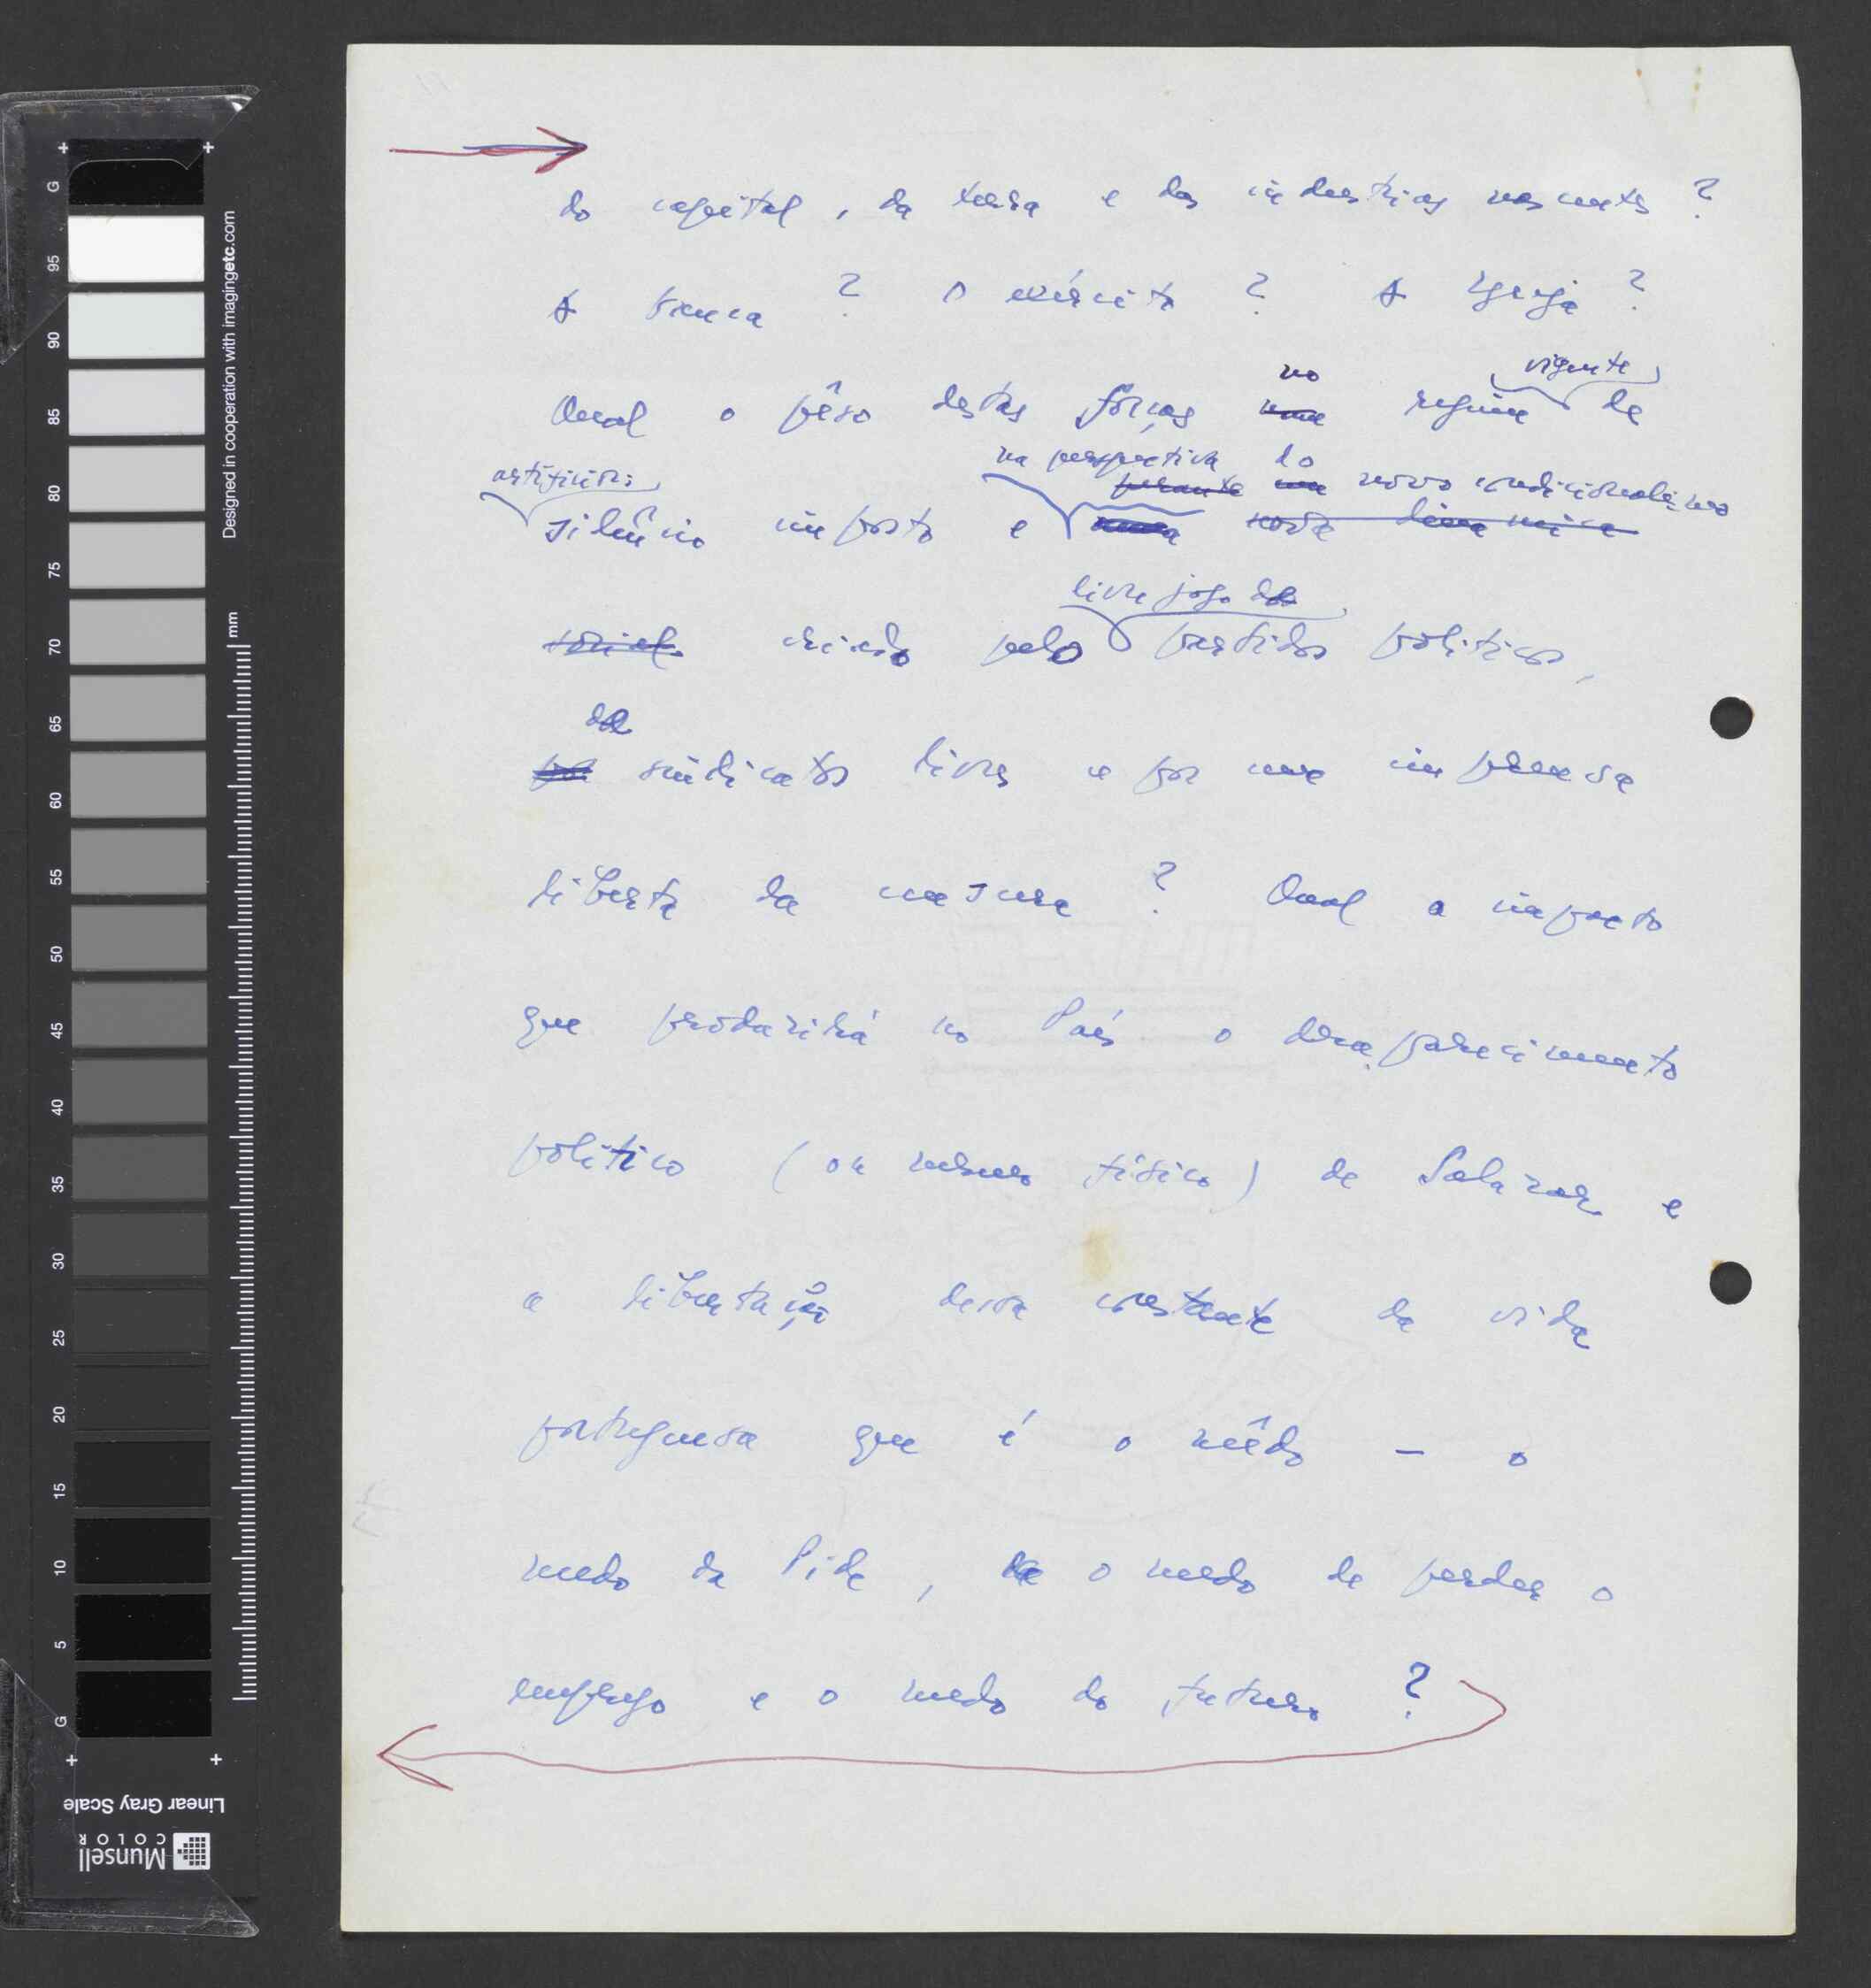 do capital, da terra e das industrias nascentes?
A banca? O exército? A Igreja?
no vigente
Qual o pêso destas fôrças regime de
na perspectiva do
artificioso perante novo condicionalismo
silêncio imposto e nova dinamica
livre jogo dos
social criado pelo partidos politicos,
de
por sindicatos livres e por uma imprensa
liberta da censura? Qual o impacto
que produzirá no País o desaparecimento
politico (ou mesmo fisico) de Salazar e
a libertação dessa constante da vida
portuguesa que é o mêdo - o
medo da Pide, o medo de perder o
emprego e o medo do futuro?
G 95 90 85 80 75 70 65 60 55 50 45 40 35 30 25 20 15 10 5 G
Designed in cooperation with imagingetc.com
mm
Linear Gray Scale
Munsell
COLOR